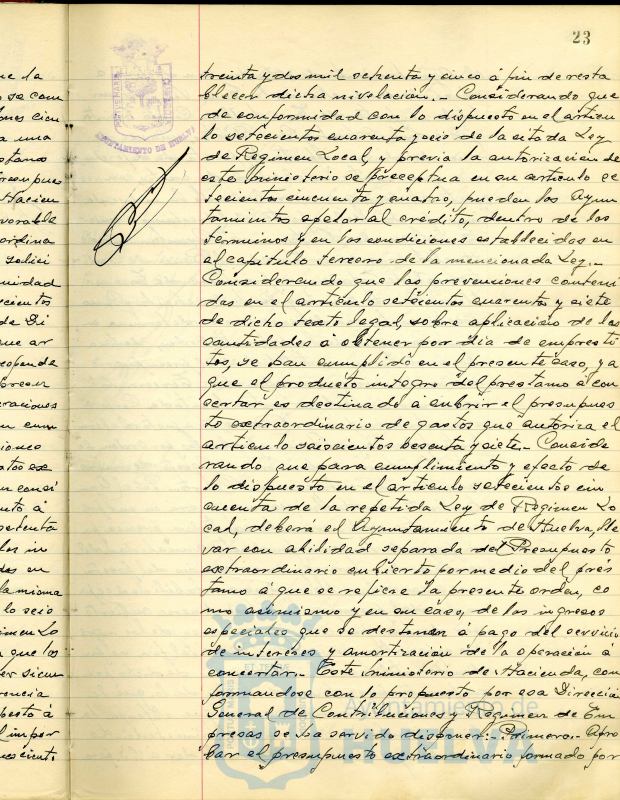 23
treinta y dos mil setenta y cinco á fin de resta
blecer dicha nivelación.- Considerando que
de conformidad con lo dispuesto en el artícu
lo setecientos cuarenta y seis de la citada Ley
de Regimen Local, y previa la autorización de
este Ministerio se preceptua en su artículo se
tecientos cincuenta y cuatro, pueden los Ayun
tamientos apelar al crédito, dentro de los
terminos y en las condiciones establecidas en
el capítulo tercero de la mencionada Ley.-
Considerando que las prevenciones conteni
das en el artículo setecientos cuarenta y siete
de dicho texto legal, sobre aplicación de las
cantidades á obtener por via de emprésti
tos, se han cumplido en el presente caso, ya
que el producto integro del prestamo á con
certar es destinado á cubrir el presupues
to extraordinario de gastos que autoriza el
artículo seiscientos sesenta y siete.- Conside
rando que para cumplimiento y efecto de
lo dispuesto en el artículo setecientos cin
cuenta de la repetida Ley de Regimen Lo
cal, deberá el Ayuntamiento de Huelva, lle
var contabilidad separada del Presupuesto
extraordinario cubierto por medio del prés
tamo á que se refiere la presente orden, co
mo asimismo y en su caso, de los ingresos
especiales que se destinan á pago del servicio
de intereses y amortización de la operación á
concertar.- Este Ministerio de Hacienda, con
formandose con lo propuesto por esa Dirección
General de Contribuciones y Regimen de Em
presas se ha servido disponer:- Primero.- Apro
bar el presupuesto extraordinario formado por
AYUNTAMIENTO DE HUELVA
Ayuntamiento de
HUELVA